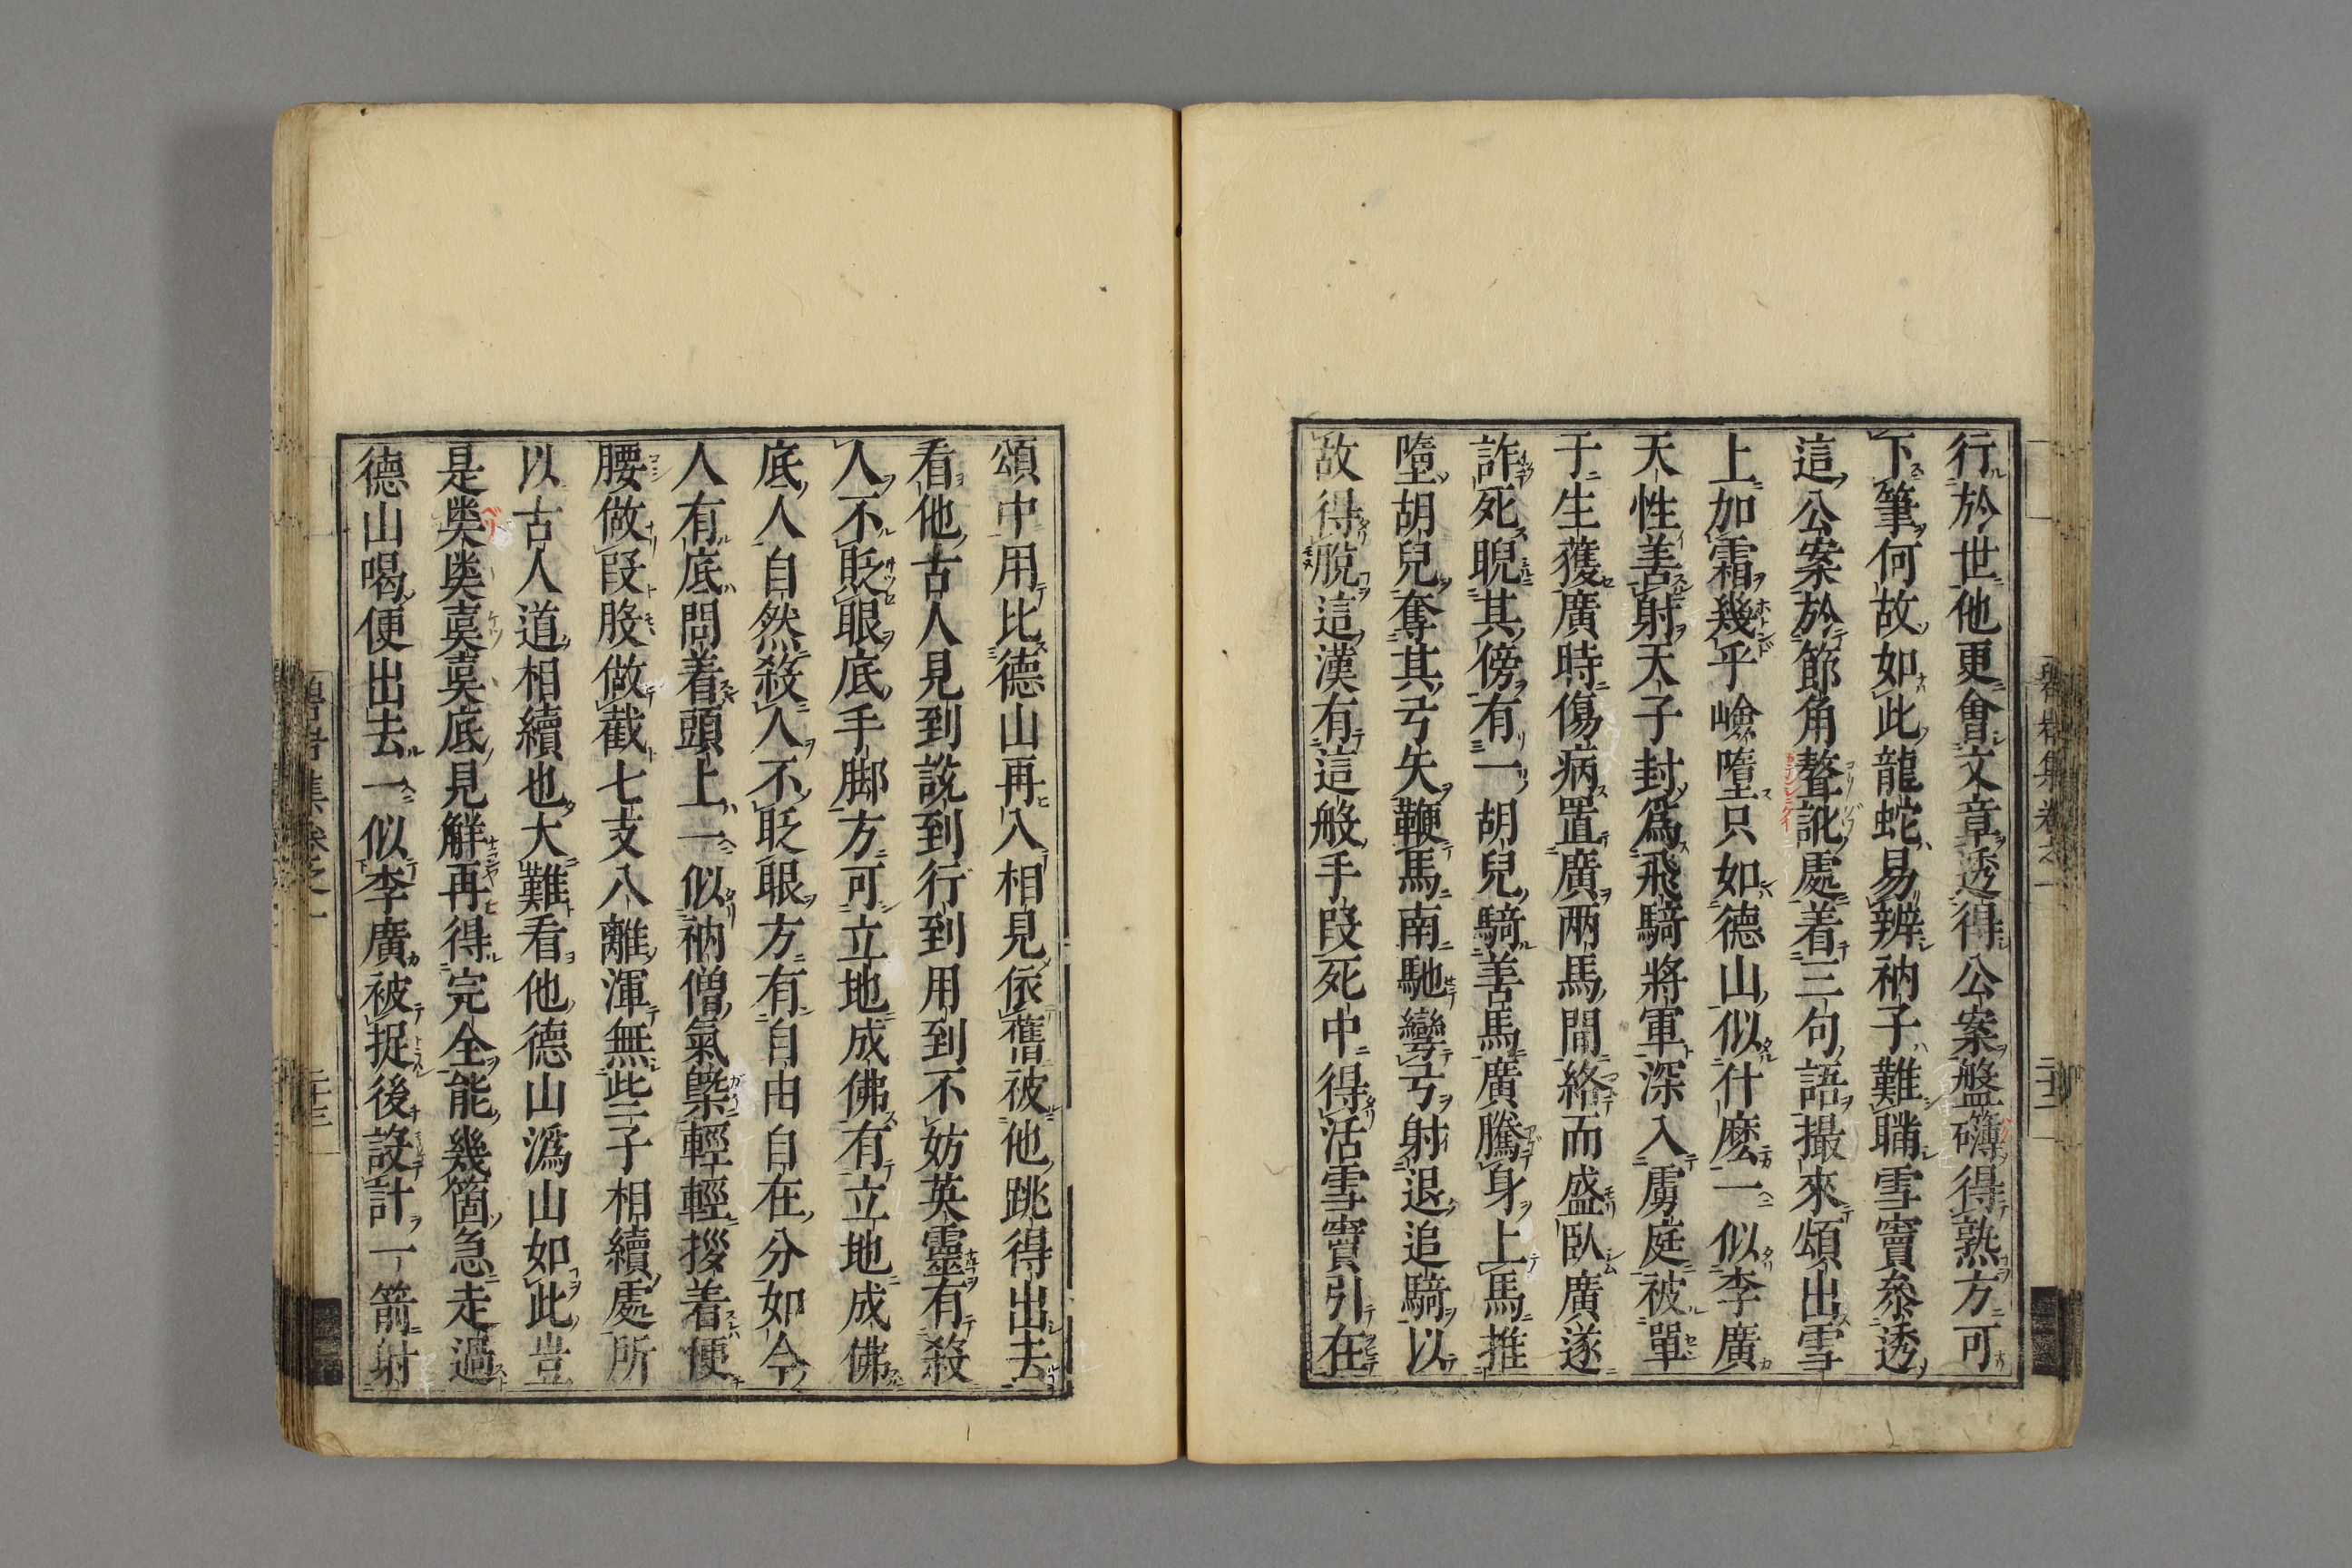 行於世他更會文章透得公案盤礴得熟方可
下筆何故如此龍蛇易辨衲子難瞞雪竇叅透
這公案於節角聱訛處着三句語撮來頌出雪
上加霜幾乎嶮墮只如德山似什麽一似李廣
天性善射天子封爲飛騎將軍深入虜庭被單
于生獲廣時傷病置廣两馬閒絡而盛臥廣遂
詐死睨其傍有一胡兒騎善馬廣騰身上馬推
墮胡兒奪其弓矢鞭馬南馳彎弓射退追騎以
故得脫這漢有這般手段死中得活雪竇引在
頌中用比德山再入相見依舊被他跳得出去
看他古人見到說到行到用到不妨英靈有殺
人不貶眼底手脚方可立地成佛有立地成佛
底人自然殺人不眨眼方有自由自在分如今
人有底問着頭上一似衲僧氣槩輕輕拶着便
腰做段股做截七支八離渾無些子相續處所
以古人道相續也大難看他德山潙山如此豈
是㒑㒑㚖㚖底見解再得完全能幾箇急走過
德山喝便出去一似李廣被捉後設計一箭射
碧巖集卷之一